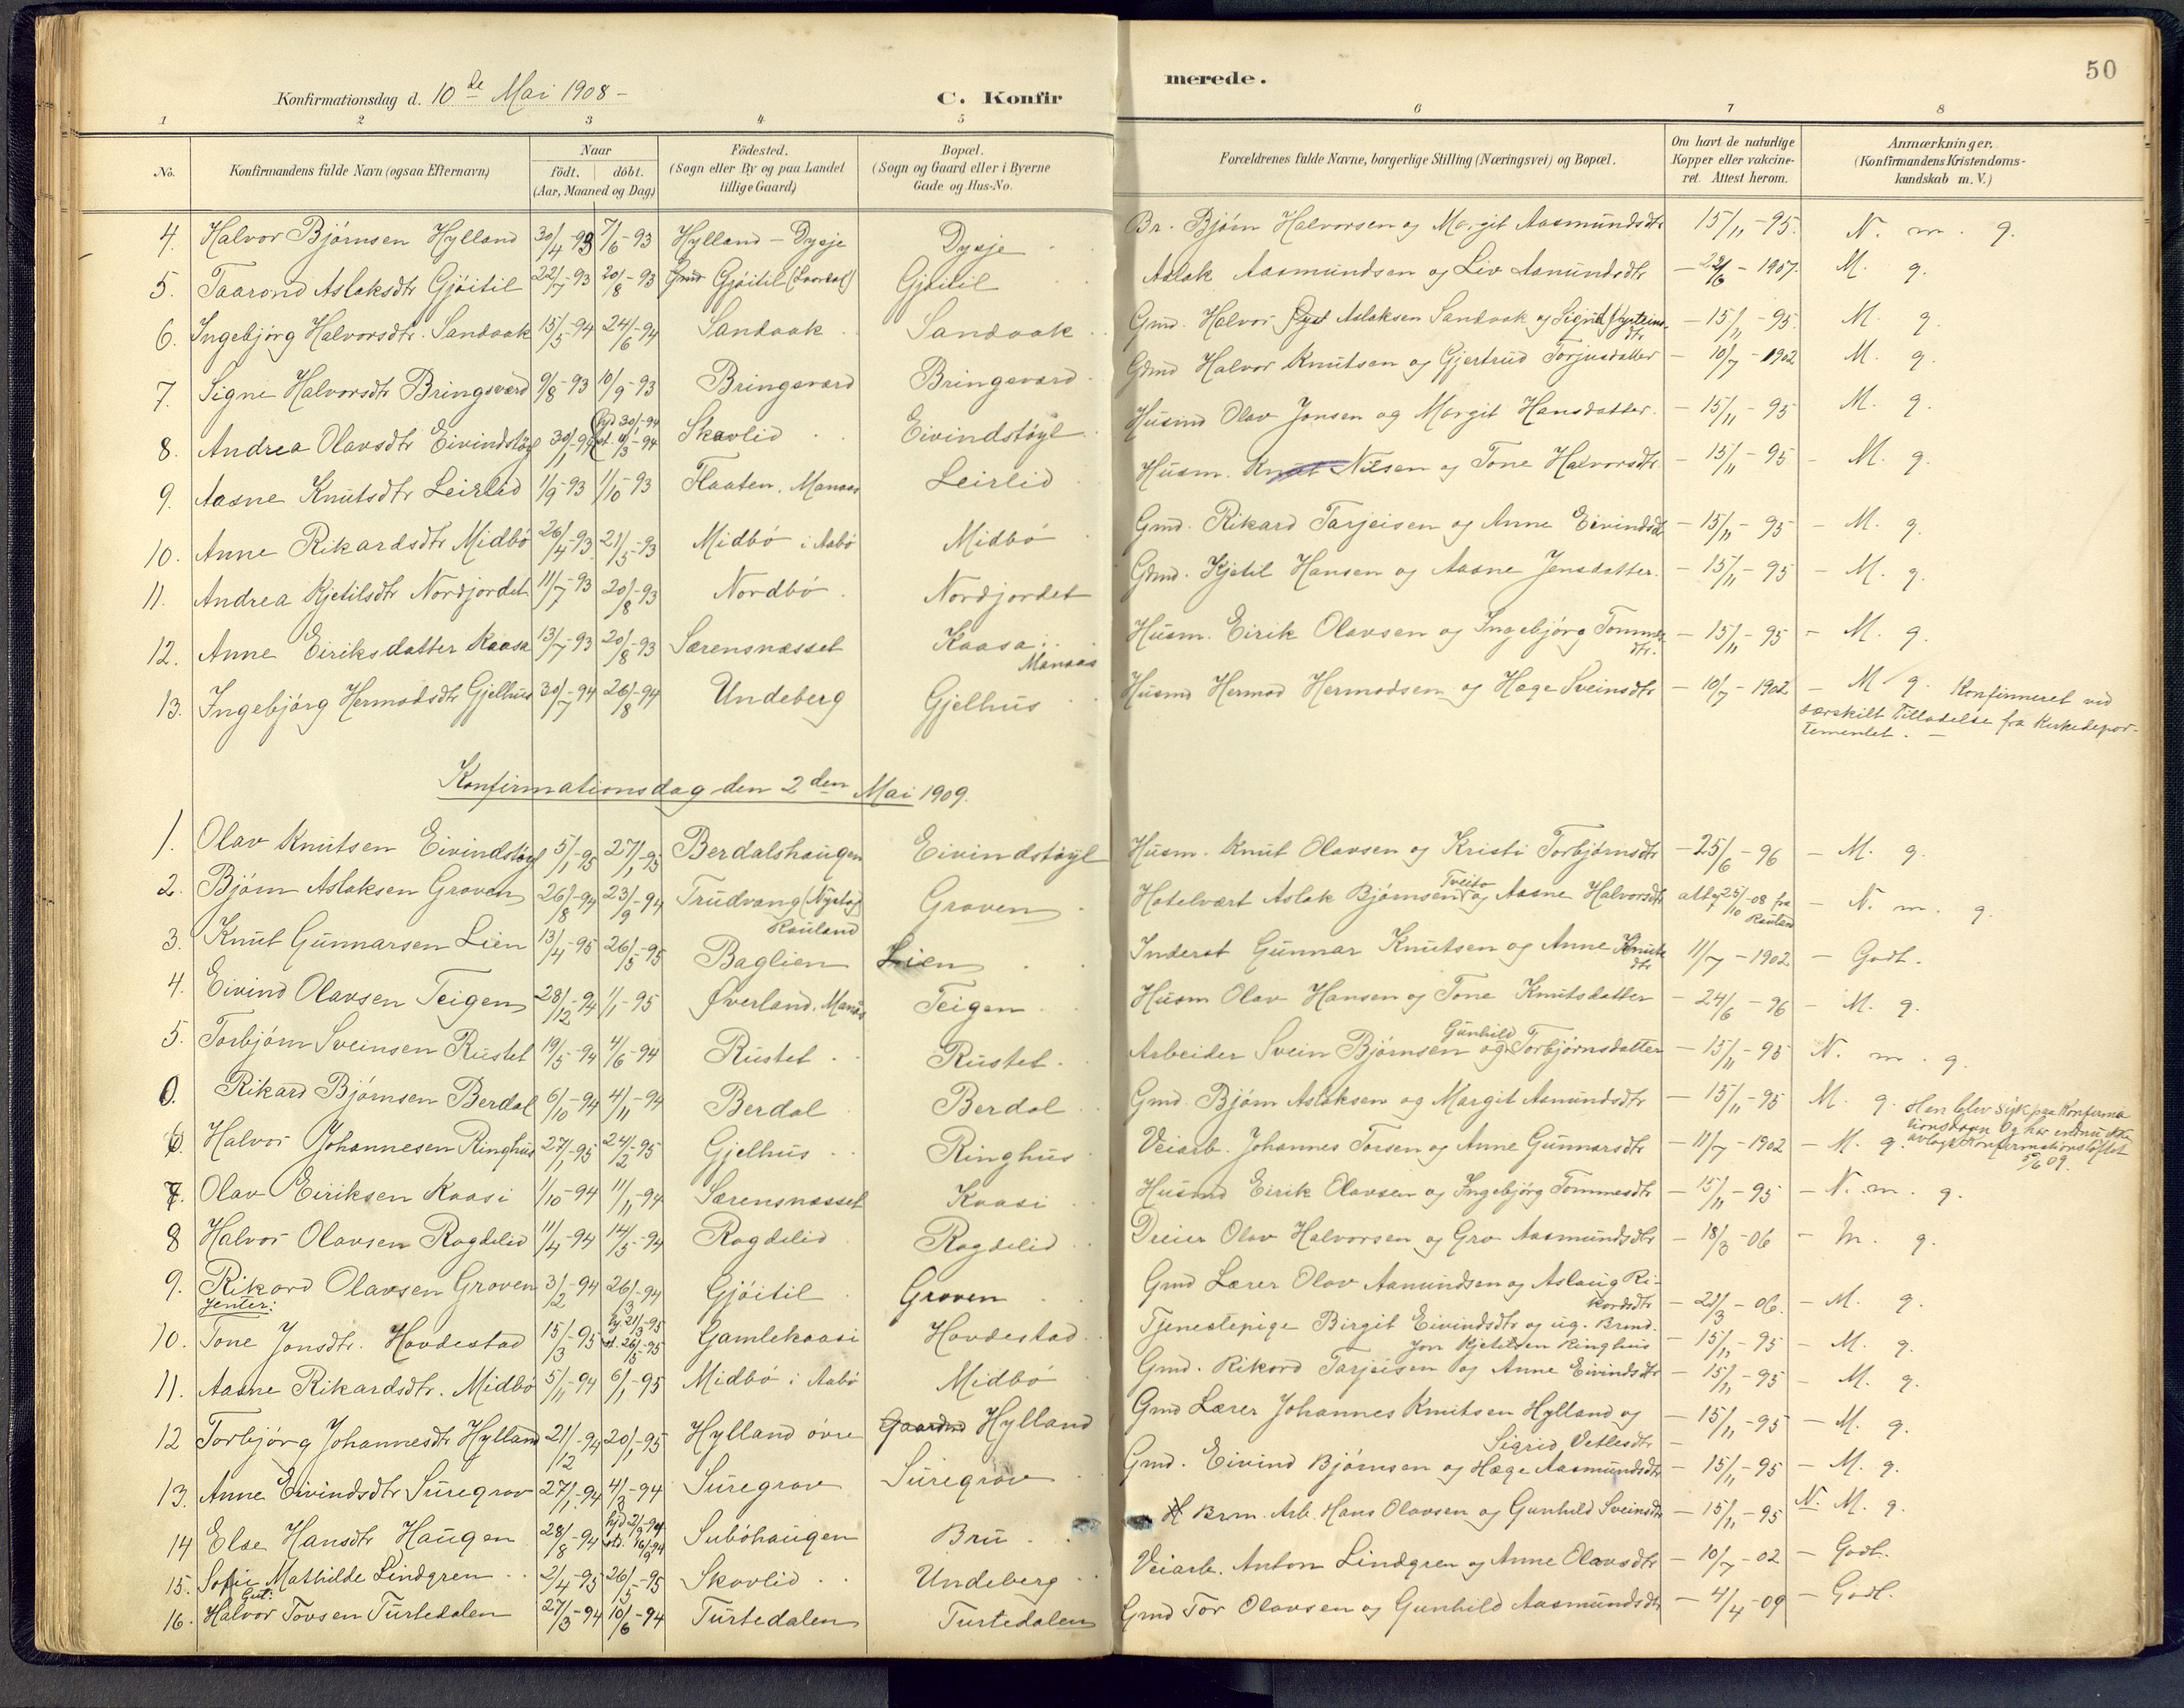 50
Konfirmationsdag d. 10de Mai 1908 -
C. Konfirmerede.
1 2 3 4 5 6 7 8
No. Konfirmandens fulde Navn (ogsaa Efternavn) Naar født. døbt. (Aar, Maaned og Dag) Fødested. (Sogn eller By og paa Landet tillige Gaard) Bopæl. (Sogn og Gaard eller i Byerne Gade og Hus-No. Forældrenes fulde Navne, borgerlige Stilling (Næringsvei) og Bopæl. Om havt de naturlige Kopper eller vakcineret. Attest herom. Anmærkninger. (Konfirmandens Kristendomskundskab m. V.)
4. Halvor Bjørnsen Hylland 30/4-93 7/6-93 Hylland - Dysje Dysje Br. Bjørn Halvorsen og Margit Aasmundsdtr 15/11-95. N. m. g.
5. Taarond Aslaksdtr Gjøitil 22/7-93 20/8-93 Gjøitil (Laardal) Gjøitil Aslak Aasmundsen og Liv Aanundsdtr - 1907. M. g.
6. Ingebjørg Halvorsdtr. Sandaak 15/5-94 24/6-94 Sandaak Sandaak Gmd. Halvor Aslaksen Sandaak og Signe -15/11-95. M. g.
7. Signe Halvorsdtr Bringsværd 9/8-93 10/9-93 Bringsværd Bringsværd Gdmd Halvor Knutsen og Gjertrud Torjusdatter - 10/7-1902 M. g.
8. Andrea Olavsdtr Eivindstøyl 30/1-94 hjd 30/1-94 st. 11/3-94 Skovlid Eivindstøyl Husmd Olav Jonsen og Margit Hansdatter. - 15/11-95 M. g.
9. Aasne Knutsdtr Leirlid 1/9-93 1/10-93 Flaaten, Manaas Leirlid Husm. Knut Nilsen og Tone Halvorsdtr. - 15/11-95 - M. g.
10. Anne Rikardsdtr Midbø 26/4-93 21/5-93 Midbø i Aabø Midbø Gmd. Rikard Tarjeisen og Anne Eivindsdtr - 15/11-95 - M. g.
11. Andrea Kjetilsdtr Nordjordet 11/7-93 20/8-93 Nordbø Nordjordet Gdmd. Kjetil Hansen og Aasne Jensdatter. - 15/11-95 - M. g.
12. Anne Eiriksdatter Kaasa 13/7-93 20/8-93 Særensnæsset Kaasa. Manaas Husm. Eirik Olavsen og Ingebjørg Tommesdtr. - 15/11-95 - M. g.
13. Ingebjørg Hermodsdtr Gjelhus 30/7-94 26/8-94 Undeberg Gjelhus Husmd Hermod Hermodsen og Hæge Sveinsdtr - 10/7-1902 - M. g. Konfirmeret ved
særskilt Tilladelse fra Kirkedepar-
tementet. -
Konfirmationsdag den 2den Mai 1909.
1. Olav Knutsen Eivindstøyl 5/1-95 27/1-95 Berdalshaugen Eivindstøyl Husm. Knut Olavsen og Kristi Torbjørnsdtr -25/6-96 - M. g.
2. Bjørn Aslaksen Groven 26/8-94 23/9-94 Trudvang (Nystog) Rauland Groven Hotelvært Aslak Bjørnsen Tveito og Aasne Halvorsdtr att. 25/10-08 fra Rauland - N. m. g.
3. Knut Gunnarsen Lien 13/4-95 26/5-95 Baglien Lien Inderst Gunnar Knutsen og Anne Knutsdtr 11/7-1902 - Godt.
4. Eivind Olavsen Teigen 28/12-94 1/1-95 Øverland, Manaas Teigen Husm Olav Hansen og Tone Knutsdatter - 24/6-96 - M. g.
5. Torbjørn Sveinsen Rustet 19/5-94 4/6-94 Rustet Rustet. Arbeider Svein Bjørnsen og Gunhild Torbjørnsdatter - 15/11-95 N. m. g.
0. Rikard Bjørnsen Berdal 6/10-94 4/11-94 Berdal Berdal Gmd. Bjørn Aslaksen og Margit Aanundsdtr - 15/11-95 M. g. Han blev syk paa Konfirma
tionsdagen og har endnu ikke
avlagt Konfirmationsløftet
5/6 09.
6. Halvor Johannesen Ringhus 27/1-95 24/2-95 Gjelhus Ringhus Veiarb. Johannes Torsen og Anne Gunnarsdtr - 11/7-1902 - M. g.
7. Olav Eiriksen Kaasi 1/10-94 11/11-94 Særensnæsset Kaasi Husmd Eirik Olavsen og Ingebjørg Tommesdtr - 15/11-95 - N. m. g.
8 Halvor Olavsen Rogdelid 11/4-94 14/5-94 Rogdelid Rogdelid Dreier Olav Halvorsen og Gro Aasmundsdtr - 18/3-06 - M. g.
9. Rikard Olavsen Groven 3/2-94 26/3-94 Gjøitil Groven Gmd Lærer Olav Aanundsen og Aslaug Rikardsdtr - 21/3-06. - M. g.
Jenter:
10. Tone Jonsdtr. Hovdestad 15/3-95 hj 21/3-95 st. 26/5-95 Gamlekaasi Hovdestad. Tjenestepige Birgit Eivindsdtr og ug. Brmd. Jon Kjetilsen Ringhus 15/11-95 - M. g.
11. Aasne Rikardsdtr. Midbø 5/11-94 6/1-95 Midbø i Aabø Midbø Gmd. Rikard Tarjeisen og Anne Eivindsdtr - 15/11-95 - M. g.
12 Torbjørg Johannesdtr Hylland 21/12-94 20/1-95 Hylland øvre Gaardmd Hylland Gmd Lærer Johannes Knutsen Hylland og Sigrid Vetlesdtr - 15/11-95 - M. g.
13. Anne Eivindsdtr Suregrov 27/1-94 4/3-94 Suregrov Suregrov Gmd. Eivind Bjørnsen og Hæge Aasmundsdtr - 15/11-95 - M. g.
14 Else Hansdtr Haugen 28/8-94 hjd 2/9-94 std. 16/9-94 Subøhaugen Bru Brm. Arb. Hans Olavsen og Gunhild Sveinsdtr - 15/11-95 N. M. g.
15. Sofie Mathilde Lindgren 2/4-95 26/5-95 Skovlid Undeberg Veiarb. Anton Lindgren og Anne Olavsdtr - 10/7-02 - Godt.
Gut:
16. Halvor Torsen Turtedalen 27/3-94 10/6-94 Turtedalen Turtedalen Gmd Tor Olavsen og Gunhild Aasmundsdtr - 4/4-09 - Godt.